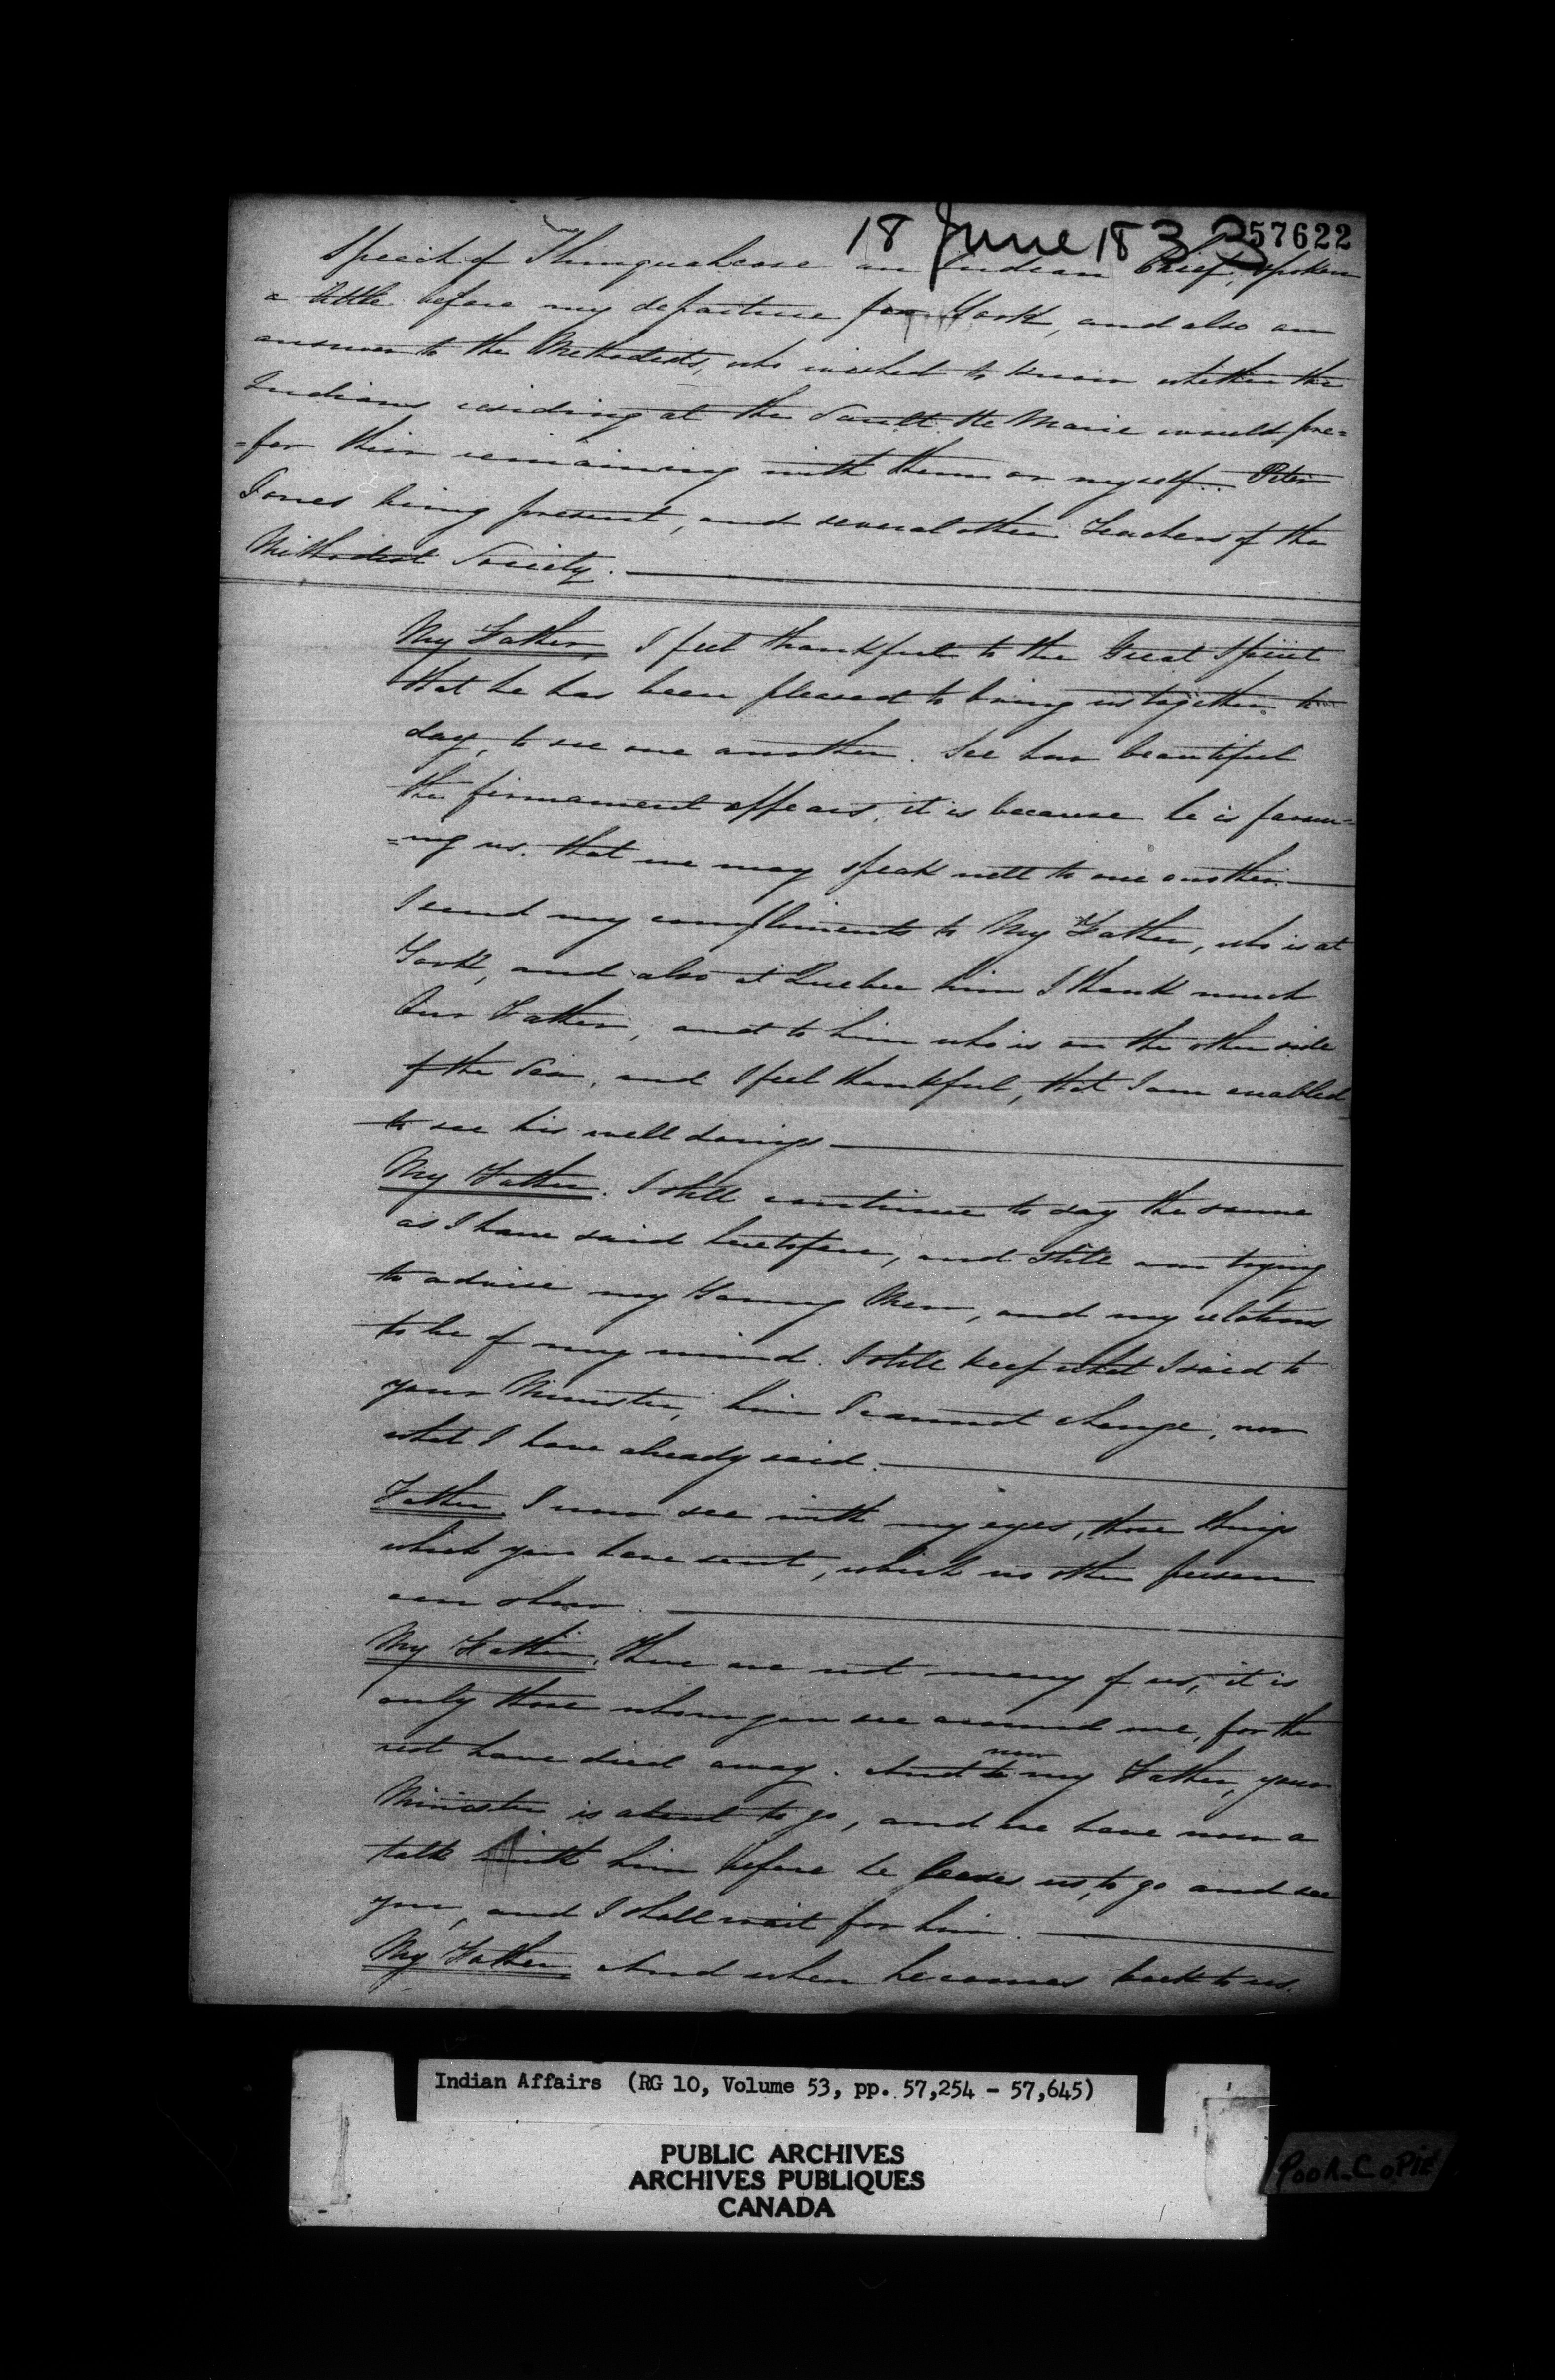 18 June 1833
57622
Speech of Shinguakcose an Indian Chief, spoken
a little before my departure for York, and also an
answer to the Methodists, who wished to know whether the
Indians residing at the Sault Ste Marie would pre=
=fer their remaining with them or myself. Peter
Jones being present, and several other Teachers of the
Methodist Society.
My Father, I feel thankful to the Great Spirit
that he has been pleased to bring us together to
day, to see one another. See how beautiful
the firmament appears, it is because he is favour=
=ing us. that we may speak well to one another.
I send my compliments to My Father, who is at
York, and also at Quebec him I thank much
Our Father, and to him who is on the other side
of the Sea, and I feel thankful, that I am enabled
to see his well doings
My Father. I still continue to say the same
as I have said heretofore, and still am trying
to advise my Young Men, and my relations
to be of my mind. I still keep what I said to
your Minister, him I cannot change, nor
what I have already said.
Father, I now see with my eyes, those things
which you have sent, which no other person
can show.
My Father, There are not many of us, it is
only those whom you see around me, for the
rest have died away. And now my Father, your
Minister is about to go, and we have now a
talk with him before he leaves us, to go and see
you, and I shall wait for him.
My Father, And when he comes back to us.
Indian Affairs (RG 10, Volume 53, pp. 57,254 - 57,645)
PUBLIC ARCHIVES
ARCHIVES PUBLIQUES
CANADA
POOR COPIE